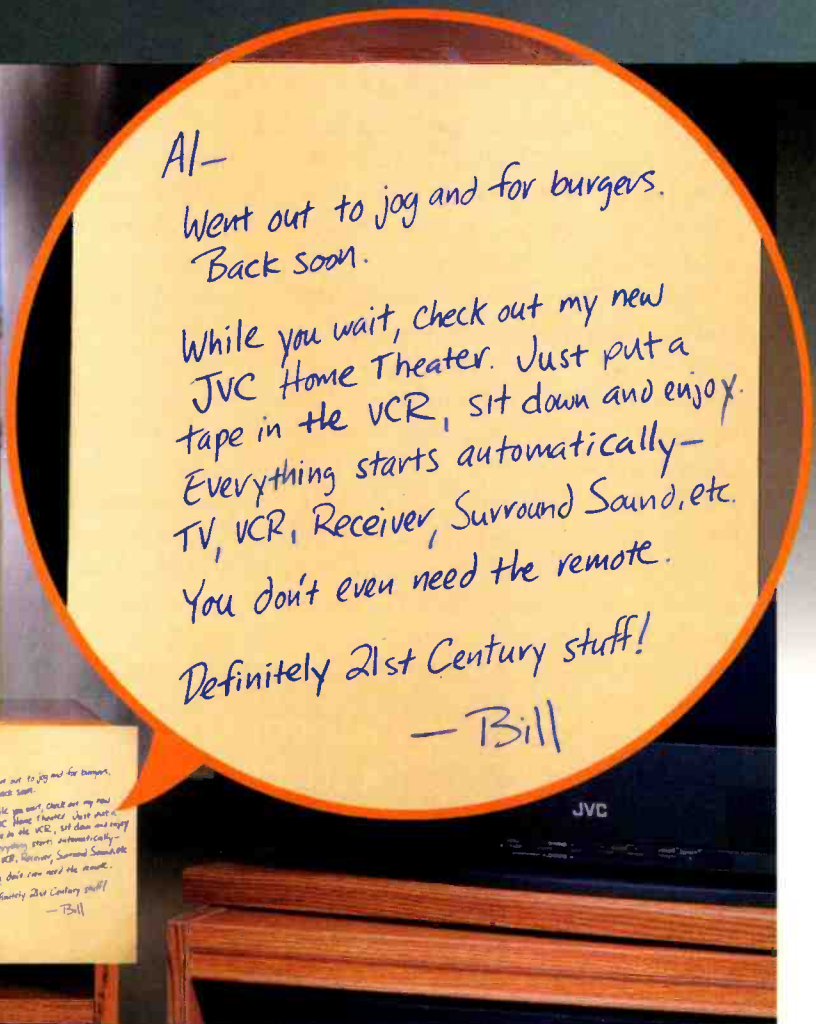 Al—
Went out to jog and for burgers.
Back soon.
While you wait, check out my new
JVC Home Theater. Just put a
tape in the VCR, sit down and enjoy.
Everything starts automatically—
TV, VCR, Receiver, Surround Sound, etc.
You don't even need the remote.
Definitely 21st Century stuff!
— Bill
JVC
out to jog and for burgers.
soon.
you wait, check out my new
Home Theater. Just put a
in the VCR, sit down and enjoy
starts automatically—
VCR, Receiver, Surround Sound, etc
don't even need the remote.
21st Century stuff!
— Bill